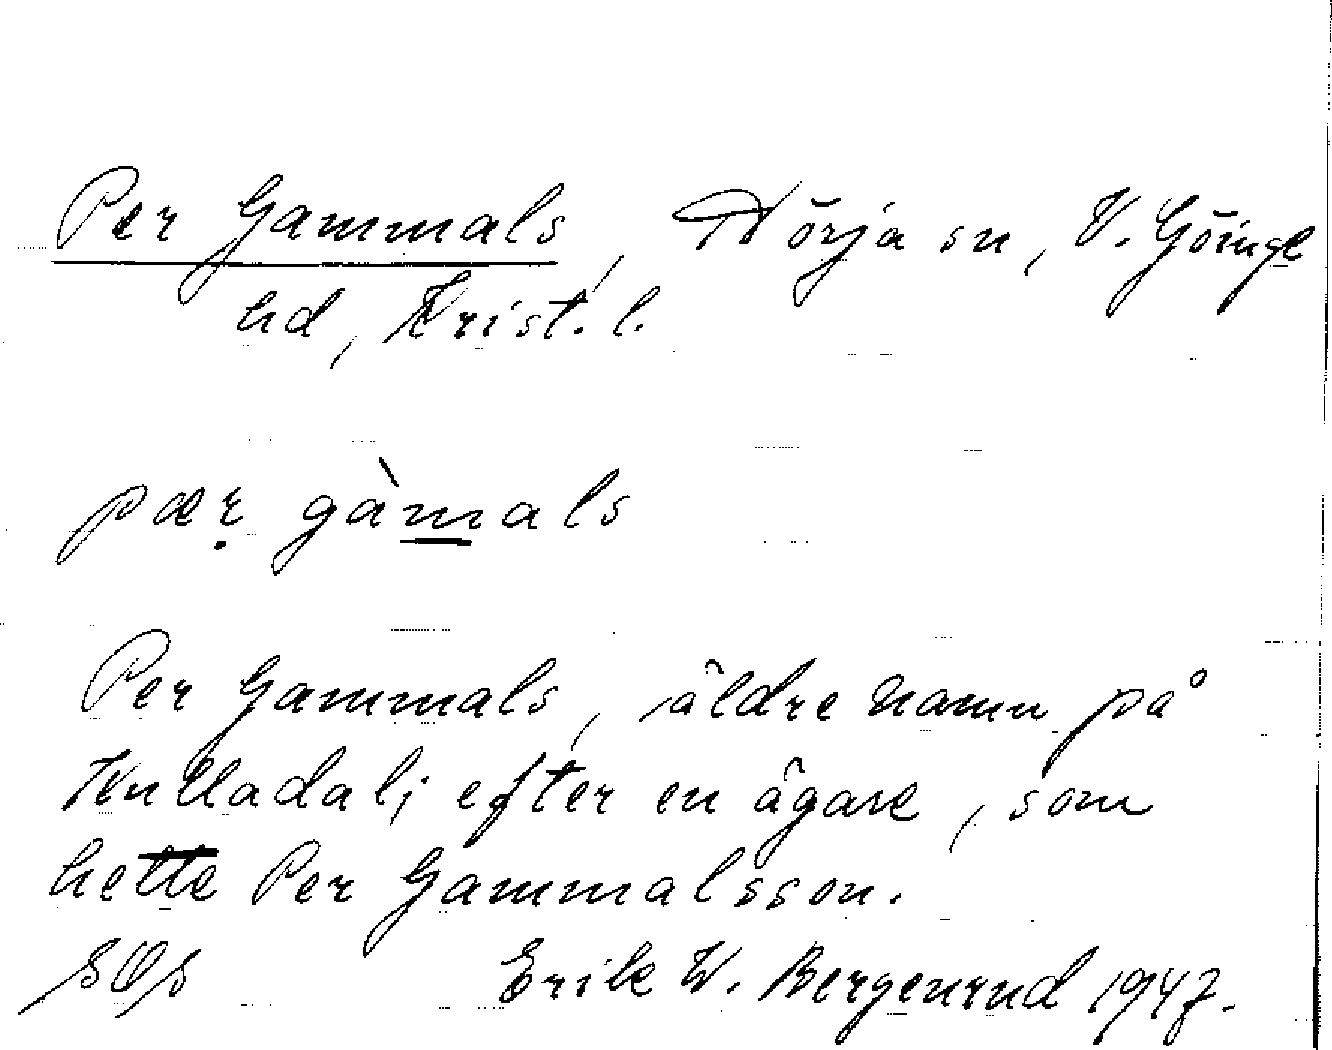 Per Gammals, Nörja sn, V. Göinge
hd, Krist. l.
pæṛ gàmals
Per Gammals, äldre namn på
Kulladal; efter en ägare, som
hette Per Gammalsson.
Erik W. Bergenrud 1947.